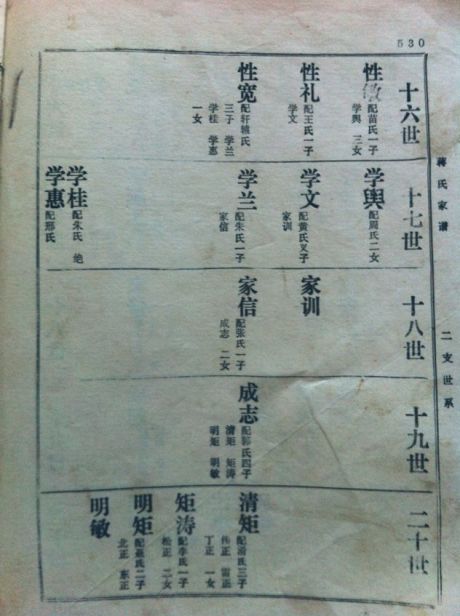 530
蒋氏家谱
二支世系
十六世
性敏
配苗氏一子
学舆 三女
性礼
配王氏一子
学文
性宽
配轩辕氏
三子 学兰
学桂 学惠
一女
十七世
学舆
配周氏二女
学文
配黄氏义子
家训
学兰
配朱氏一子
家信
学桂
配朱氏 绝
学惠
配邢氏
十八世
家训
家信
配张氏一子
成志 二女
十九世
成志
配郭氏四子
清矩 矩涛
明矩 明敏
二十世
清矩
伟正 雷正
丁正 一女
矩涛
配李氏一子
松正 二女
明矩
配聂氏二子
北正 东正
明敏